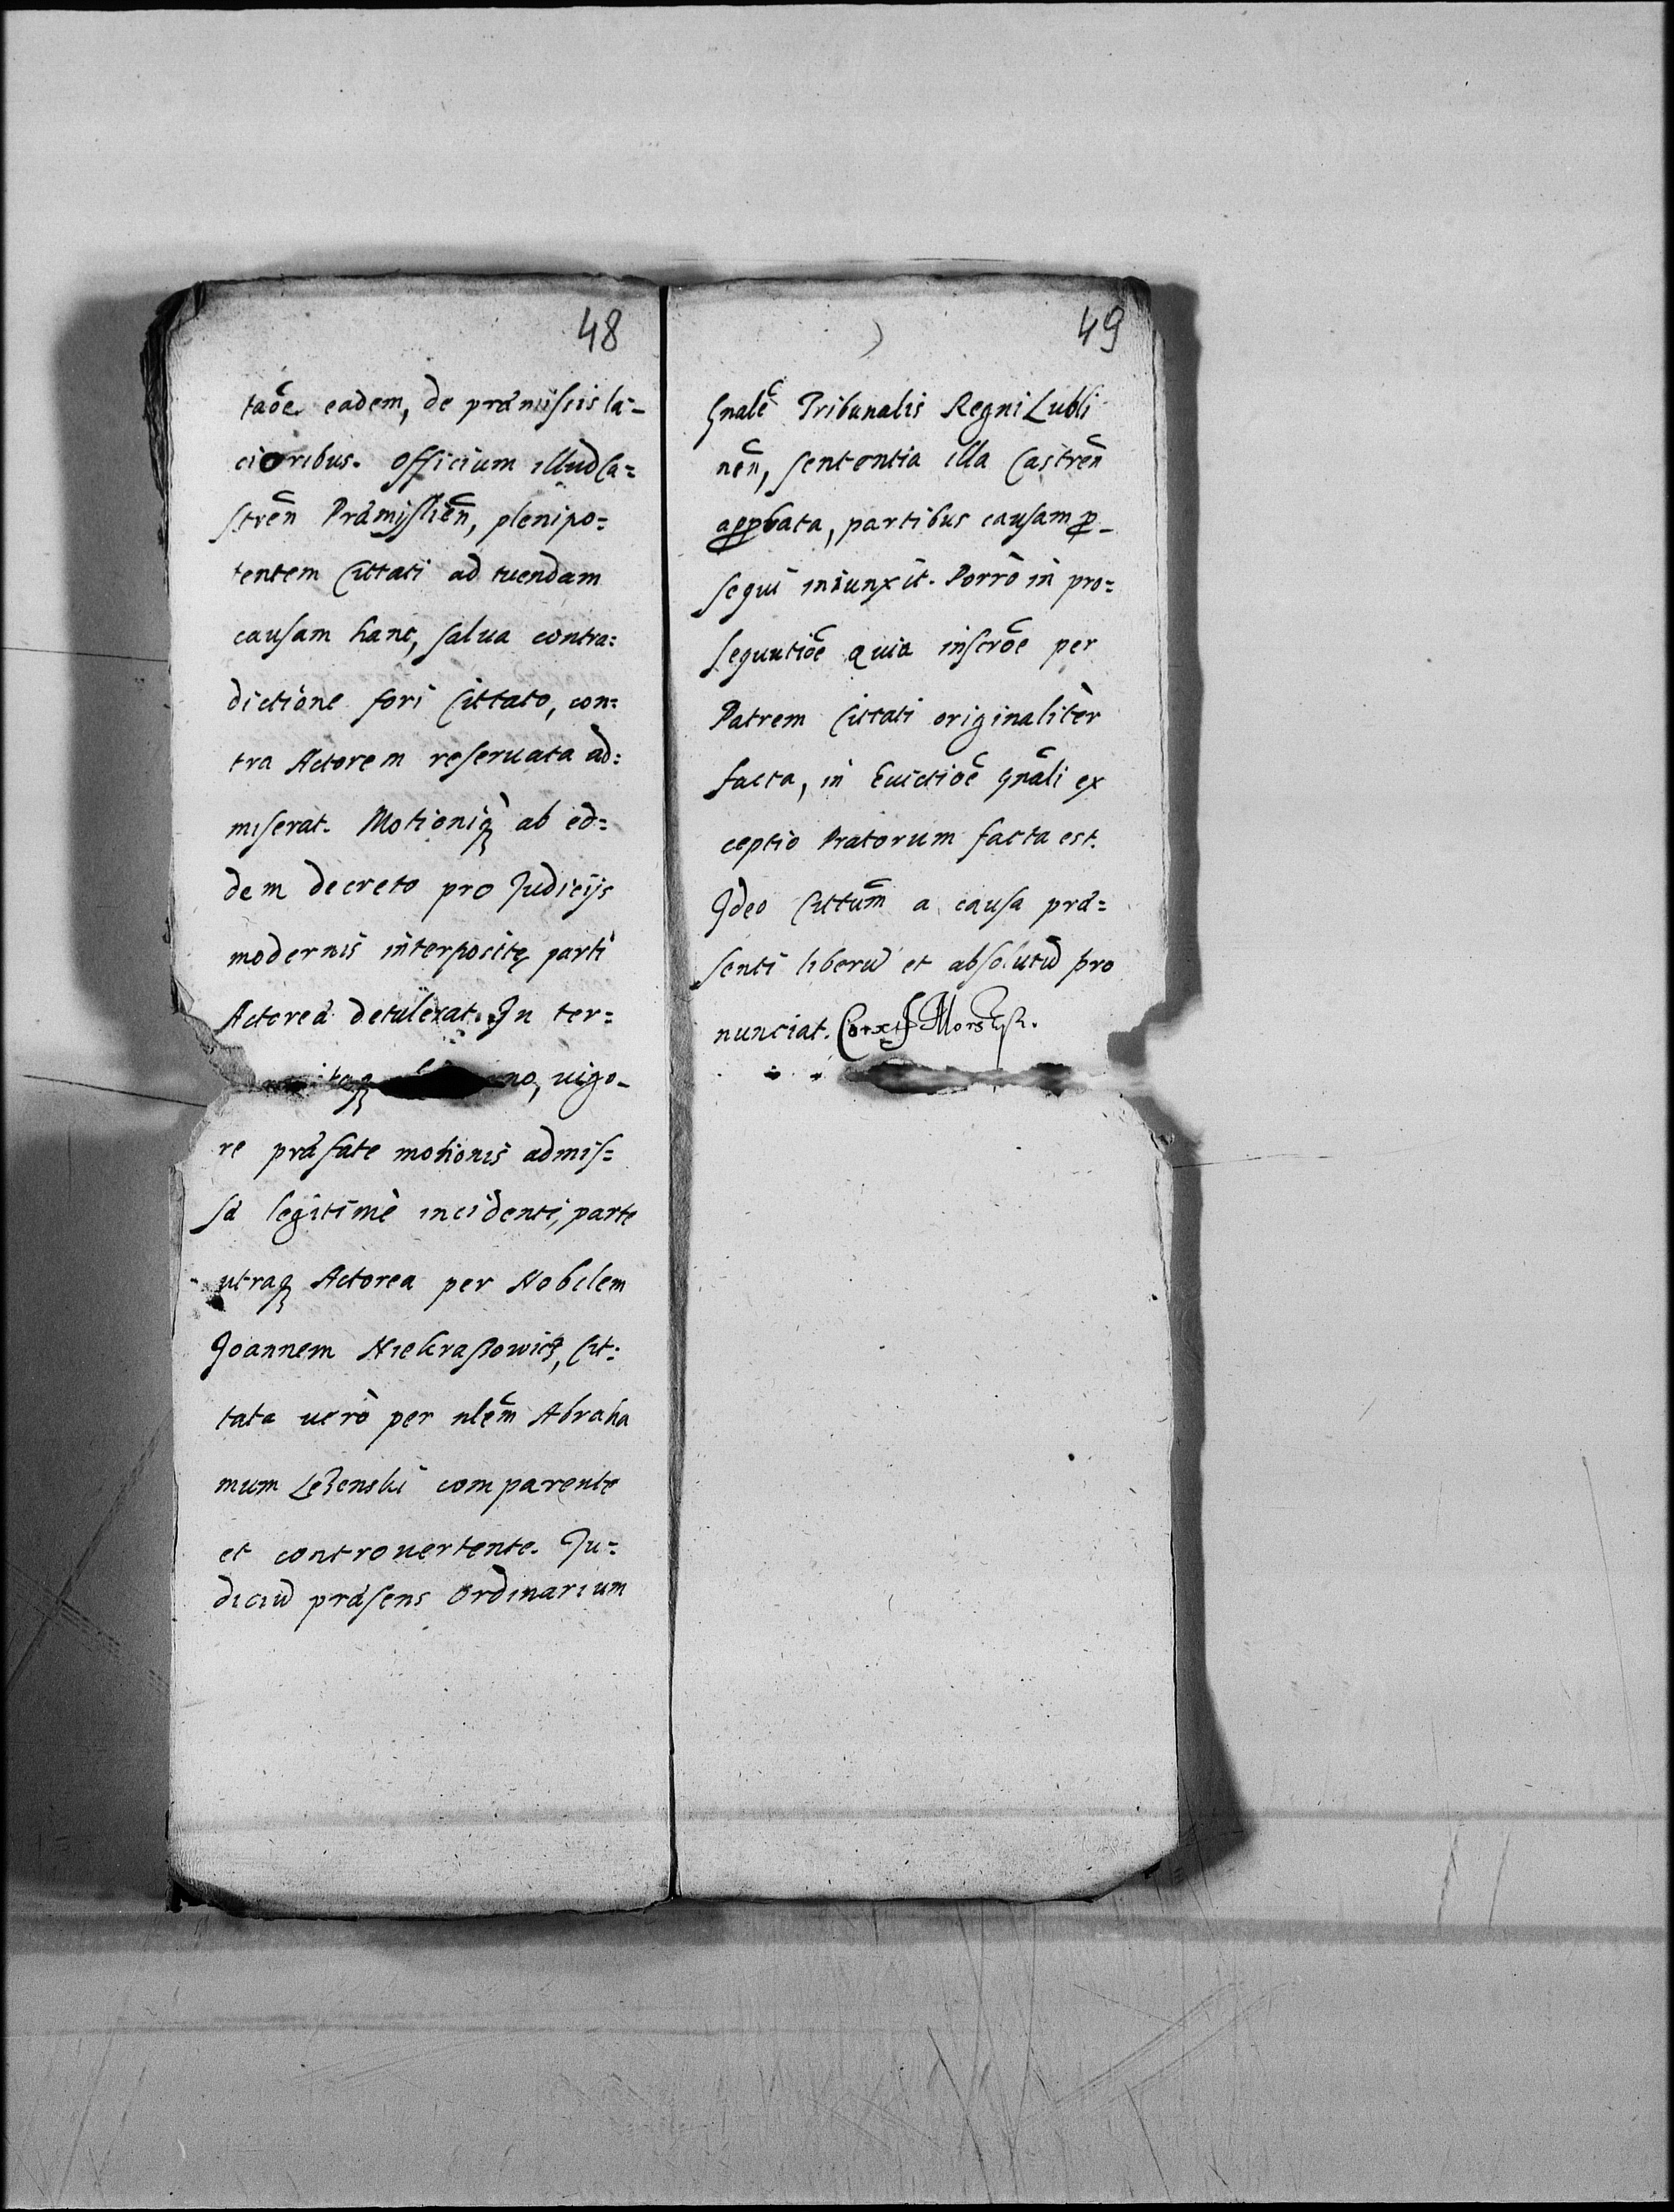 48
taõe eadem, de præmissis la-
cioribus. Officium illud Ca=
streñ Præmyslieñ, plenipo=
tentem Cittati ad tuendam
causam hanc, salua contra=
dictione fori Cittato, con=
tra Actorem reseruata ad=
miserat. Motioniq̃ ab eo=
dem decreto pro Judicijs
modernis interpositę parti
Actoreæ detulerat. In ter=
no, uigo-
re præfate motionis admis=
sæ legitimè incidenti, parte
utraq Actorea per Nobilem
Joannem Niekraszowicz, Cit=
tata uerò per nlem̃ Abraha
mum Leżenski comparente
et controuertente. Ju=
diciũ præsens Ordinarium
49
Gnale Tribunalis Regni Lubli
neñ, sententia illa Castreñ
appbata, partibus causam p-
sequi iniunxit. Porrò in pro=
sequutiõe quia inscrõe per
Patrem Cittati originalitèr
facta, in Euictiõe gnãli ex
ceptio Pratorum facta est.
Ideo Cittum̃ a causa præ=
senti liberũ et absolutũ pro
nunciat.